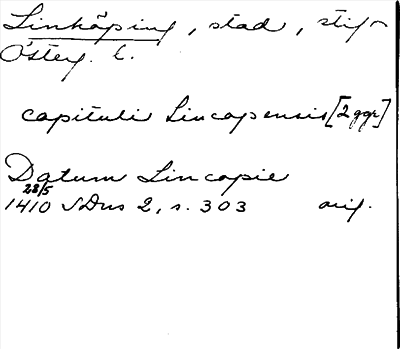 Linköping, stad, stift
Österg. l.
capituli Lincopensis [2 ggr]
Datum Lincopie
28/5
1410 SDns 2, s. 303 orig.